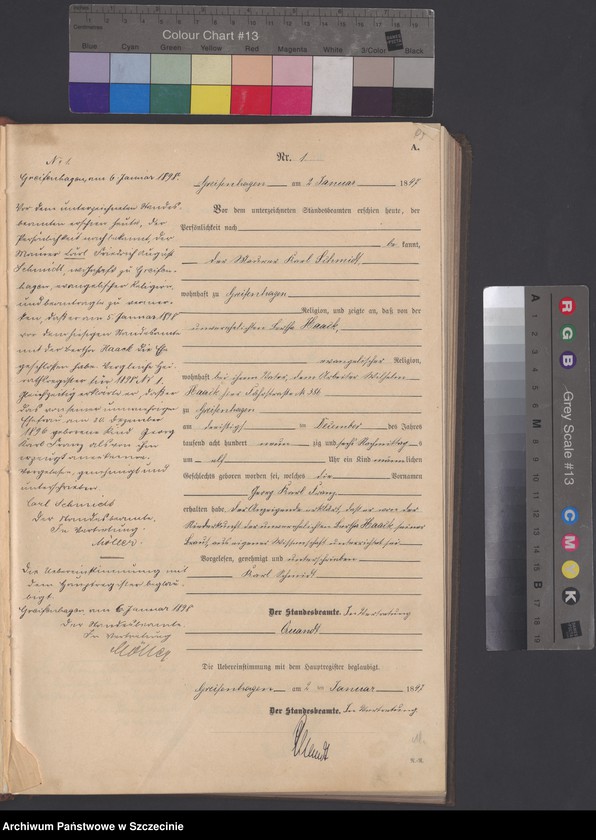 Colour Chart #13
Blue Cyan Green Yellow Red Magenta White 3/Color Black
A.
No 1
Greifenhagen, am 6. Januar 1898.
Vor dem unterzeichneten Standes-
beamten erschien heute, der
Persönlichkeit nach bekannt, der
Maurer Carl Friedrich August
Schmidt, wohnhaft zu Greifen-
hagen, evangelischer Religion,
und beantragte zu vermer-
ken, daß er am 5. Januar 1898
vor dem hiesigen Standesamte
mit der Bertha Haack die Ehe
geschlossen habe. Vergleiche Hei-
rathsregister für 1898 No 1.
Gleichzeitig erklärte er, daß er
das von seiner nunmehrigen
Ehefrau am 30. Dezember
1896 geborene Kind Georg
Karl Franz als von ihm
erzeugt anerkenne.
Vorgelesen, genehmigt und
unterschrieben.
Carl Schmidt
Der Standesbeamte.
In Vertretung
Möller.
Die Uebereinstimmung mit
dem Hauptregister beglau-
bigt.
Greifenhagen, am 6. Januar 1898
Der Standesbeamte
In Vertretung
Möller
Nr. 1
Greifenhagen am 2 Januar 1897
Vor dem unterzeichneten Standesbeamten erschien heute, der
Persönlichkeit nach
be kannt,
der Maurer Karl Schmidt,
wohnhaft zu Greifenhagen
Religion, und zeigte an, daß von der
unverehelichten Bertha Haack,
evangelischer Religion,
wohnhaft bei ihrem Vater, dem Arbeiter Wilhelm
Haack, hier
zu Greifenhagen
am dreißigsten Dezember des Jahres
tausend acht hundert neun zig und sechs Nachmittag s
um elf Uhr ein Kind männlichen
Geschlechts geboren worden sei, welches die Vornamen
Georg Karl Franz
erhalten habe. Der Anzeigende erklärt, daß er von der
Niederkunft der unverehelichten Bertha Haack, seiner
Braut, aus eigener Wissenschaft unterrichtet sei.
Vorgelesen, genehmigt und unterschrieben
Karl Schmidt
Der Standesbeamte. In Vertretung
Die Uebereinstimmung mit dem Hauptregister beglaubigt.
Greifenhagen am 2 ten Januar 1897
Der Standesbeamte. In Vertretung
Grey Scale #13
R G B C M Y K
A 1 2 3 4 5 6 M 8 9 10 11 12 13 14 15 B 17 18 19
Archiwum Państwowe w Szczecinie